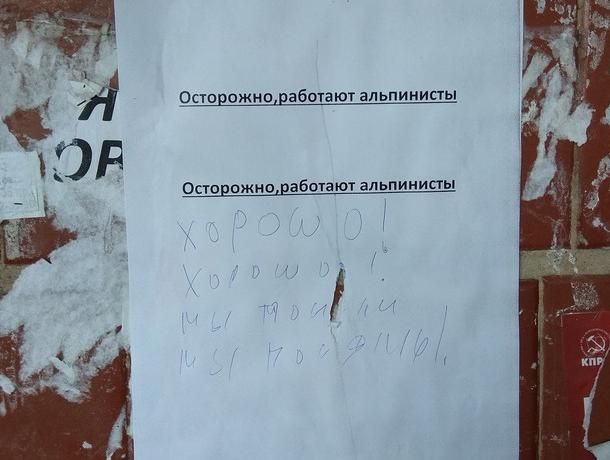 Я
ОР
Осторожно,работают альпинисты
Осторожно,работают альпинисты
ХОРОШО!
ХОРОШО!
МЫ ПОНЯЛИ
МЫ ПОНЯЛИ!
КПР